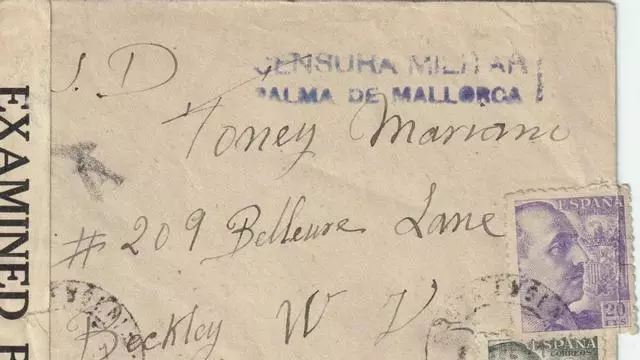 CENSURA MILITAR
PALMA DE MALLORCA
S. D
Toney Mariani
# 209 Bellevre Lane
Beckley W V
EXAMINED
ESPAÑA
20
PTS
ESPAÑA
CORREOS